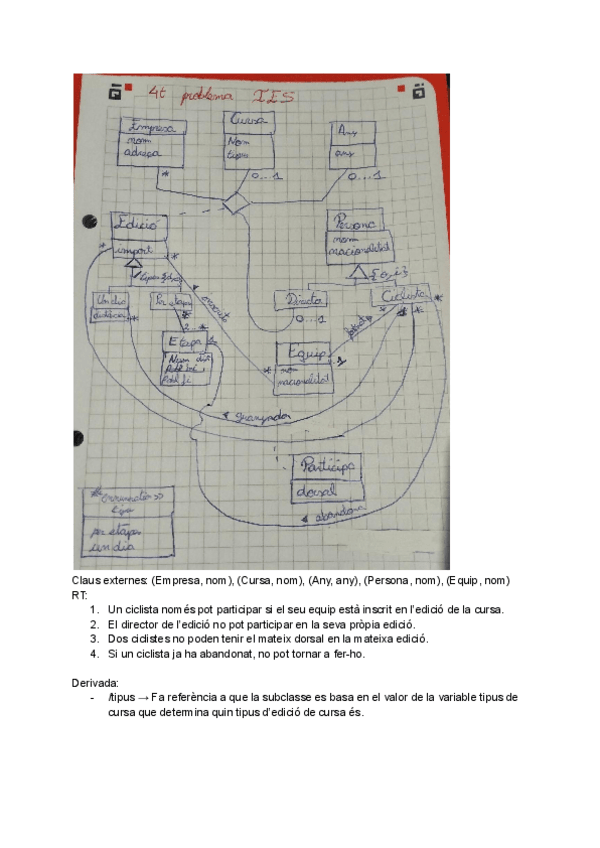 4t problema IES
Empresa
nom
adreça
Cursa
Nom
tipus
Any
any
*
0...1
0...1
Edició
import
*
*
Persona
nom
nacionalitat
Un dia
distància
Per etapes
Directo
Ciclista
*
0...1
2..*
Etapa
*
Equip
nom
nacionalitat
1
*
guanyador
Participa
dorsal
abandona
per etapes
un dia
Claus externes: (Empresa, nom), (Cursa, nom), (Any, any), (Persona, nom), (Equip, nom)
RT:
1. Un ciclista només pot participar si el seu equip està inscrit en l’edició de la cursa.
2. El director de l’edició no pot participar en la seva pròpia edició.
3. Dos ciclistes no poden tenir el mateix dorsal en la mateixa edició.
4. Si un ciclista ja ha abandonat, no pot tornar a fer-ho.
Derivada:
- /tipus → Fa referència a que la subclasse es basa en el valor de la variable tipus de
cursa que determina quin tipus d’edició de cursa és.